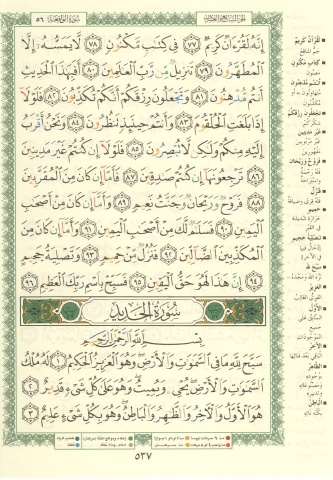 سورة الواقعة ٥٦
الجزء السابع والعشرون
إِنَّهُۥ لَقُرْءَانٌ كَرِيمٌ ٧٧ فِى كِتَٰبٍ مَّكْنُونٍ ٧٨ لَّا يَمَسُّهُۥٓ إِلَّا
ٱلْمُطَهَّرُونَ ٧٩ تَنزِيلٌ مِّن رَّبِّ ٱلْعَٰلَمِينَ ٨٠ أَفَبِهَٰذَا ٱلْحَدِيثِ
أَنتُم مُّدْهِنُونَ ٨١ وَتَجْعَلُونَ رِزْقَكُمْ أَنَّكُمْ تُكَذِّبُونَ ٨٢ فَلَوْلَآ
إِذَا بَلَغَتِ ٱلْحُلْقُومَ ٨٣ وَأَنتُمْ حِينَئِذٍ تَنظُرُونَ ٨٤ وَنَحْنُ أَقْرَبُ
إِلَيْهِ مِنكُمْ وَلَٰكِن لَّا تُبْصِرُونَ ٨٥ فَلَوْلَآ إِن كُنتُمْ غَيْرَ مَدِينِينَ
٨٦ تَرْجِعُونَهَآ إِن كُنتُمْ صَٰدِقِينَ ٨٧ فَأَمَّآ إِن كَانَ مِنَ ٱلْمُقَرَّبِينَ
٨٨ فَرَوْحٌ وَرَيْحَانٌ وَجَنَّتُ نَعِيمٍ ٨٩ وَأَمَّآ إِن كَانَ مِنْ أَصْحَٰبِ
ٱلْيَمِينِ ٩٠ فَسَلَٰمٌ لَّكَ مِنْ أَصْحَٰبِ ٱلْيَمِينِ ٩١ وَأَمَّآ إِن كَانَ مِنَ
ٱلْمُكَذِّبِينَ ٱلضَّآلِّينَ ٩٢ فَنُزُلٌ مِّنْ حَمِيمٍ ٩٣ وَتَصْلِيَةُ جَحِيمٍ
٩٤ إِنَّ هَٰذَا لَهُوَ حَقُّ ٱلْيَقِينِ ٩٥ فَسَبِّحْ بِٱسْمِ رَبِّكَ ٱلْعَظِيمِ ٩٦
سُورَةُ الحَدِيدِ
بِسْمِ ٱللَّهِ ٱلرَّحْمَٰنِ ٱلرَّحِيمِ
سَبَّحَ لِلَّهِ مَا فِى ٱلسَّمَٰوَٰتِ وَٱلْأَرْضِ وَهُوَ ٱلْعَزِيزُ ٱلْحَكِيمُ ١ لَهُۥ مُلْكُ
ٱلسَّمَٰوَٰتِ وَٱلْأَرْضِ يُحْىِۦ وَيُمِيتُ وَهُوَ عَلَىٰ كُلِّ شَىْءٍ قَدِيرٌ ٢
هُوَ ٱلْأَوَّلُ وَٱلْءَاخِرُ وَٱلظَّٰهِرُ وَٱلْبَاطِنُ وَهُوَ بِكُلِّ شَىْءٍ عَلِيمٌ ٣
٥٣٧